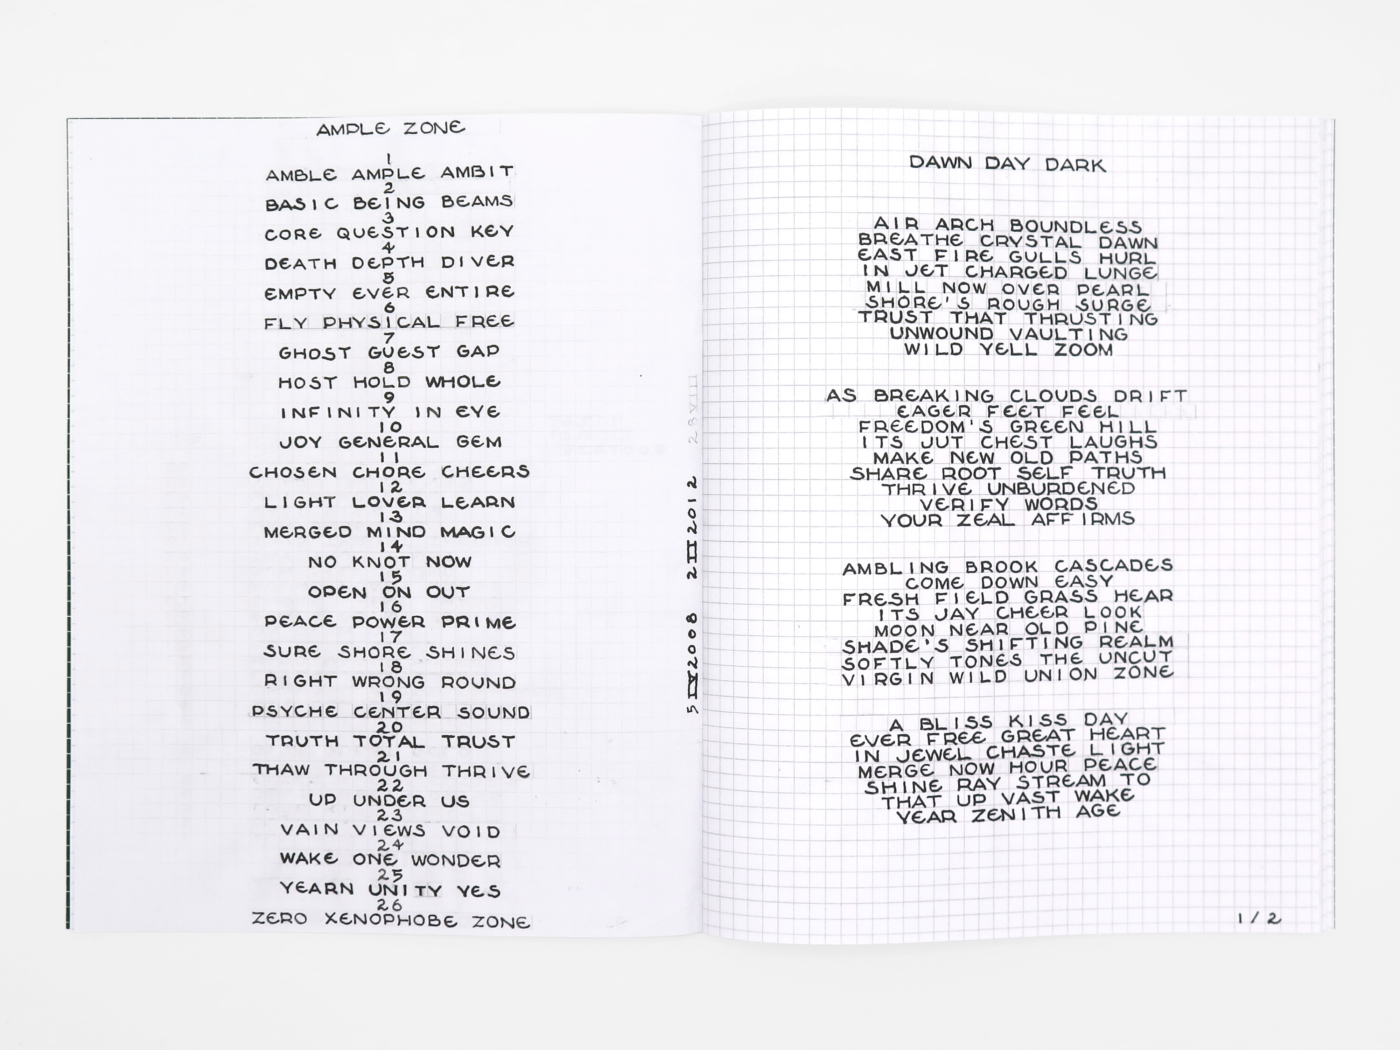 AMPLE ZONE
1
AMBLE AMPLE AMBIT
2
BASIC BEING BEAMS
3
CORE QUESTION KEY
4
DEATH DEPTH DIVER
5
EMPTY EVER ENTIRE
6
FLY PHYSICAL FREE
7
GHOST GUEST GAP
8
HOST HOLD WHOLE
9
INFINITY IN EYE
10
JOY GENERAL GEM
11
CHOSEN CHORE CHEERS
12
LIGHT LOVER LEARN
13
MERGED MIND MAGIC
14
NO KNOT NOW
15
OPEN ON OUT
16
PEACE POWER PRIME
17
SURE SHORE SHINES
18
RIGHT WRONG ROUND
19
PSYCHE CENTER SOUND
20
TRUTH TOTAL TRUST
21
THAW THROUGH THRIVE
22
UP UNDER US
23
VAIN VIEWS VOID
24
WAKE ONE WONDER
25
YEARN UNITY YES
26
ZERO XENOPHOBE ZONE
2 II 2012
DAWN DAY DARK
AIR ARCH BOUNDLESS
BREATHE CRYSTAL DAWN
EAST FIRE GULLS HURL
IN JET CHARGED LUNGE
MILL NOW OVER PEARL
SHORE'S ROUGH SURGE
TRUST THAT THRUSTING
UNWOUND VAULTING
WILD YELL ZOOM
AS BREAKING CLOUDS DRIFT
EAGER FEET FEEL
FREEDOM'S GREEN HILL
ITS JUT CHEST LAUGHS
MAKE NEW OLD PATHS
SHARE ROOT SELF TRUTH
THRIVE UNBURDENED
VERIFY WORDS
YOUR ZEAL AFFIRMS
AMBLING BROOK CASCADES
COME DOWN EASY
FRESH FIELD GRASS HEAR
ITS JAY CHEER LOOK
MOON NEAR OLD PINE
SHADE'S SHIFTING REALM
SOFTLY TONES THE UNCUT
VIRGIN WILD UNION ZONE
A BLISS KISS DAY
EVER FREE GREAT HEART
IN JEWEL CHASTE LIGHT
MERGE NOW HOUR PEACE
SHINE RAY STREAM TO
THAT UP VAST WAKE
YEAR ZENITH AGE
1/2